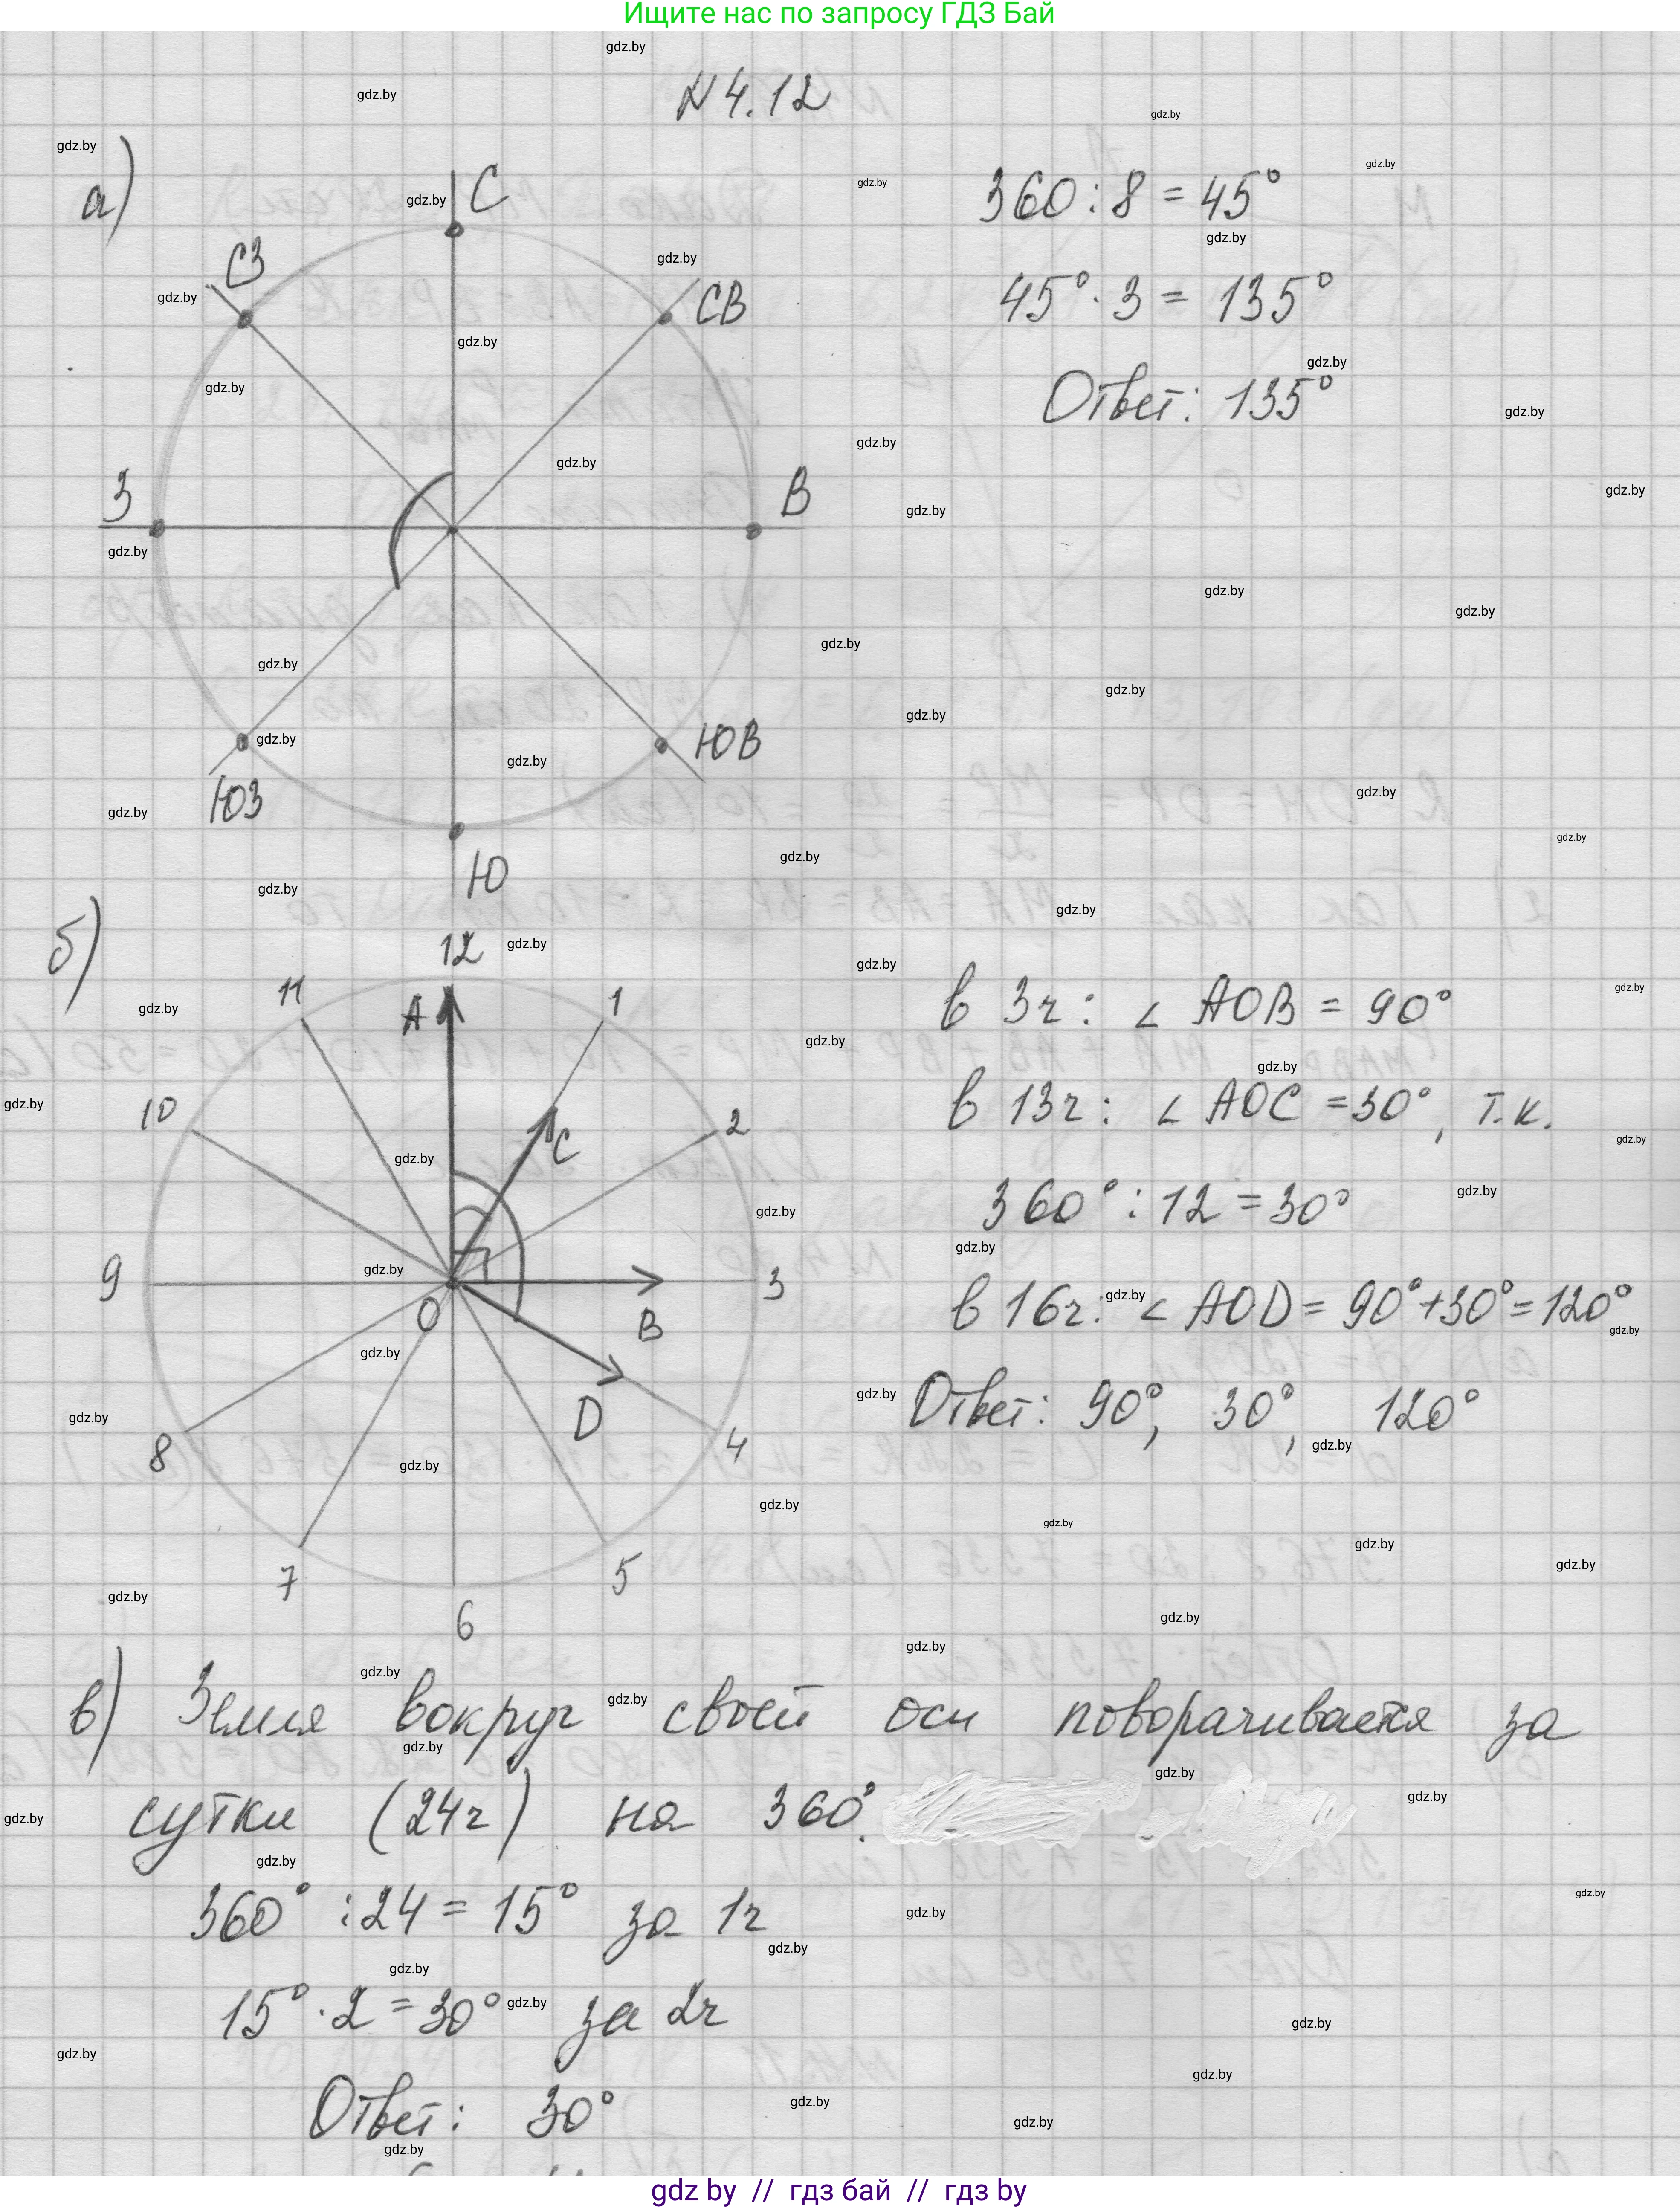 Ищите нас по запросу ГДЗ Бай
N 4.12
а)
С
СЗ
СВ
З
В
ЮЗ
ЮВ
Ю
360 : 8 = 45°
45° · 3 = 135°
Ответ: 135°
б)
12
11
А
1
10
С
2
9
О
В
3
D
8
4
7
5
6
в 3ч: ∠ AOB = 90°
в 13ч: ∠ AOC = 30°, т.к.
360° : 12 = 30°
в 16ч: ∠ AOD = 90°+30°=120°
Ответ: 90°, 30°, 120°
в) Земля вокруг своей оси поворачивается за
сутки (24ч) на 360°.
360° : 24 = 15° за 1ч
15° · 2 = 30° за 2ч
Ответ: 30°
gdz by // гдз бай // гдз by